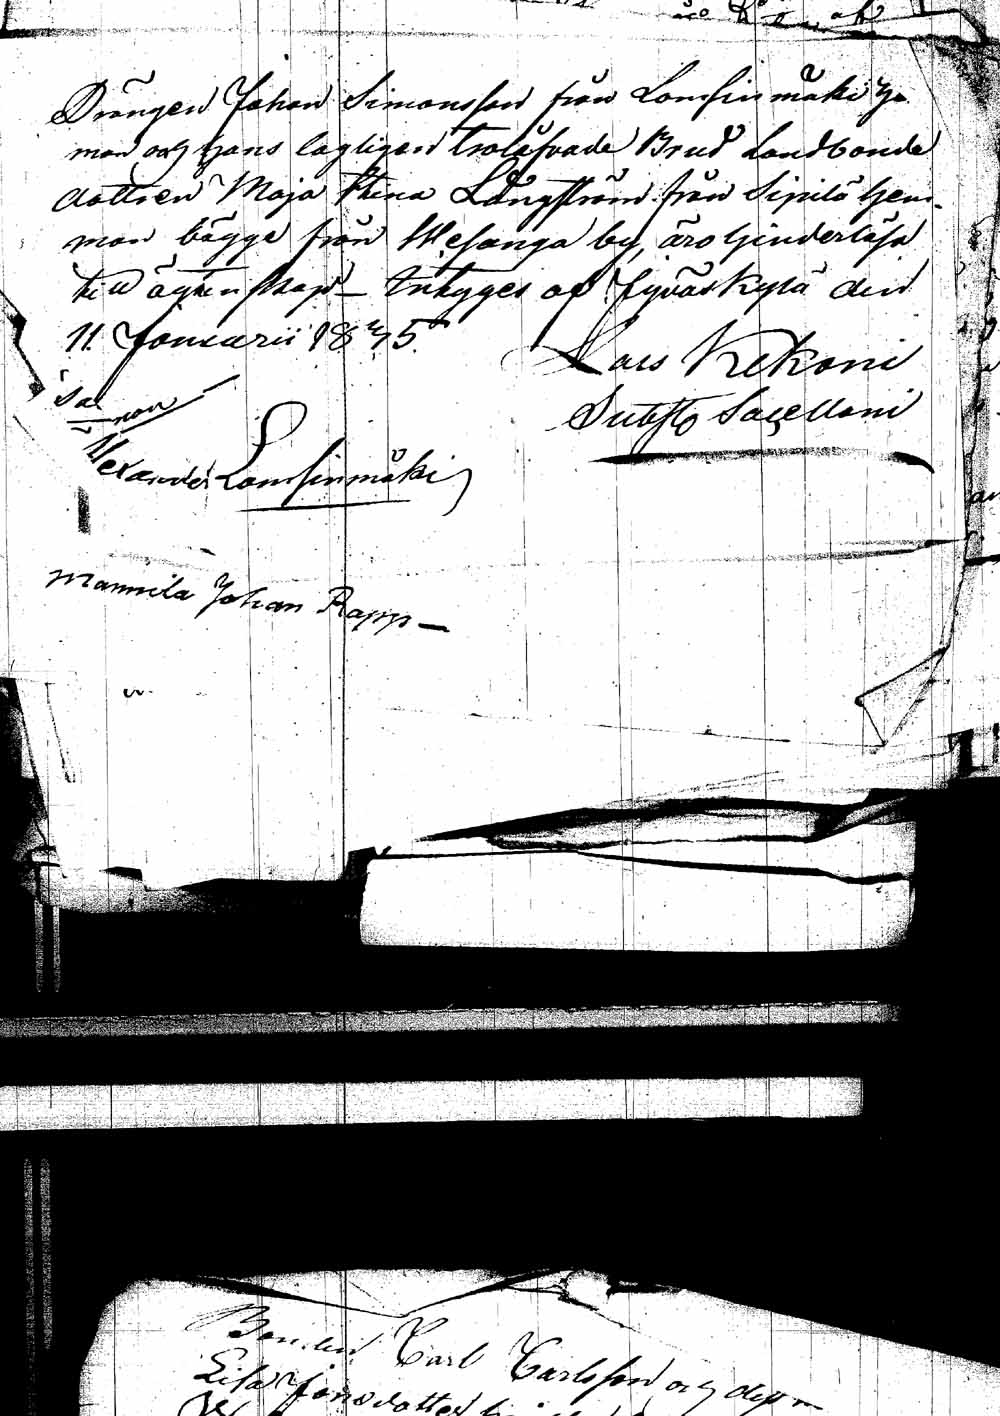 Drängen Johan Simonsson från Lonsinmäki he
man och hans lagligen trolåfvade Brud Landbonde
dottren Maja Stina Långström från Sipilä hem-
man bägge från Wesanga by, äro hinderlösa
till ägtenskap – intygges af Jyväskylä den
11. Januarii 1845.
Lars Kekoni
Subst: Sacellani
Alexander Lonsinmäki
Mannila Johan Rapp –
Bonden Carl Carlsson och dess
Lisa Jonsdotter